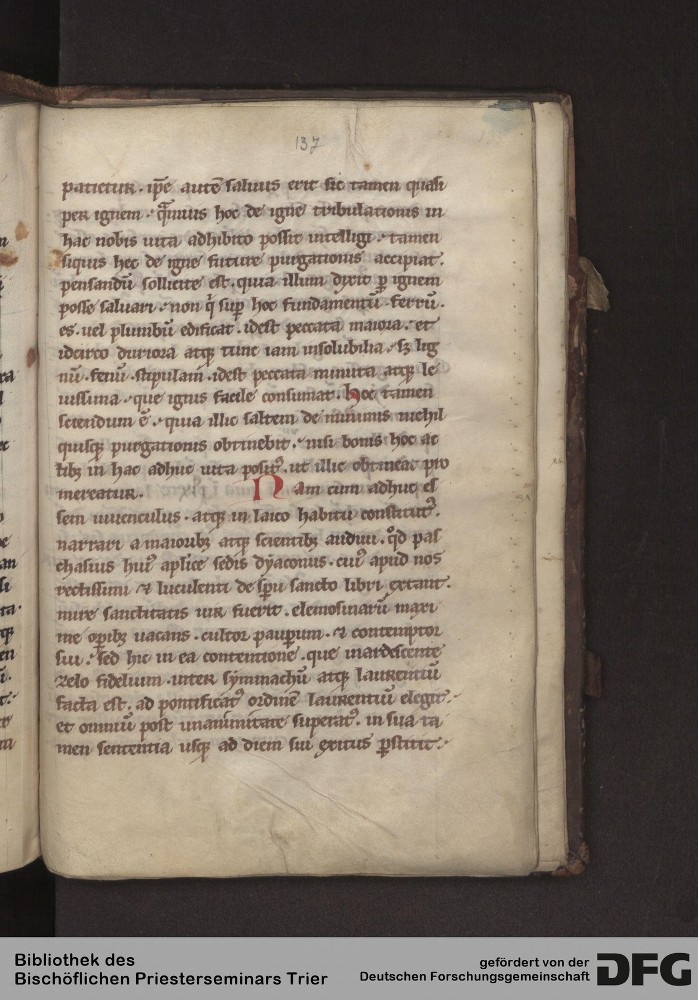 137
patietur. ip̄e autē saluus erit sic tamen quasi
per ignem. q̄muis hoc de igne tribulationis in
hac nobis uita adhibito possit intelligi. tamen
siquis hec de igne future purgationis accipiat.
pensandū sollicite est. quia illum dixit ꝑ ignem
posse saluari. non q̇ suꝑ hoc fundamentū ferrū.
es. uel plumbū edificat. idest peccata maiora. et
idcirco duriora atqꝫ tunc iam insolubilia. sꝫ lig
nū. fenū. stipulam. idest peccata minuta atqꝫ le
uissima. que ignis facile consumat. hoc tamen
sciendum ē. quia illic saltem de minimis nichil
quisqꝫ purgationis obtinebit. nisi bonis hoc ac
tibꝫ in hac adhuc uita positꝰ. ut illic obtineat pro
mereatur. Nam cum adhuc es
sem iuuenculus. atqꝫ in laico habitu constitutꝰ.
narrari a maioribꝫ atqꝫ scientibꝫ audiui. qd̓ pas
chasius huiꝰ aplice sedis dyaconus. cuiꝰ apud nos
rectissimi ⁊ luculenti de sp̄u sancto libri extant.
mire sanctitatis uir fuerit. elemosinarū maxi
me oꝑibꝫ uacans. cultor pauꝑum. ⁊ contemptor
sui. sed hic in ea contentione. que inardescente
zelo fidelium. inter symmachū atqꝫ laurentiū
facta est. ad pontificatꝰ ordinē laurentiū elegit.
et omniū post unanimitate superatꝰ. in sua ta
men sententia usqꝫ ad diem sui exitus ꝑstitit.
Bibliothek des
Bischöflichen Priesterseminars Trier
gefördert von der
Deutschen Forschungsgemeinschaft
DFG